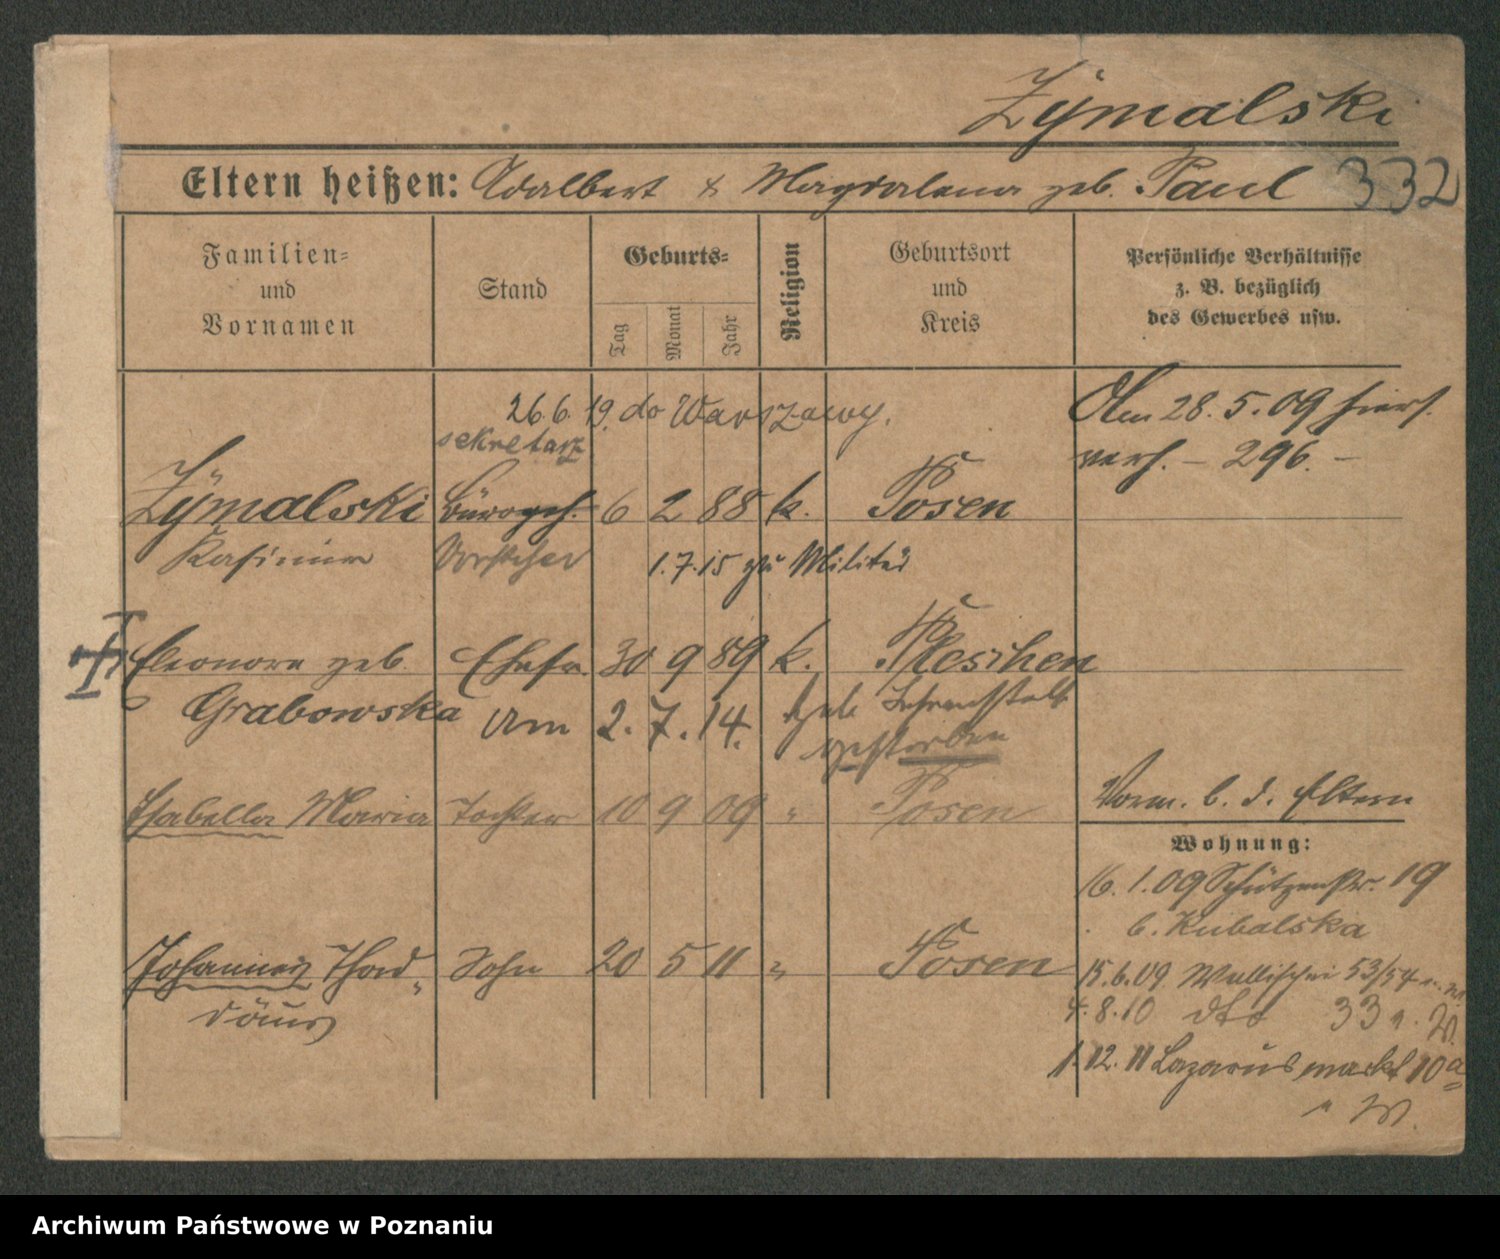 Zÿmalski
Eltern heißen: Adalbert & Magdalena geb. Paul 332
Familien=
und
Vornamen
Stand
Geburts=
Tag
Monat
Jahr
Religion
Geburtsort
und
Kreis
Persönliche Verhältnisse
z. B. bezüglich
des Gewerbes usw.
26.6.19. do Warszawy.
sekretarz
Am 28.5.09 hier
verh. – 296. –
Zÿmalski Bürogeh. 6 2 88 k. Posen
Kasimir Vorsteher 1.7.15 zu Militär
Eleonore geb. Ehefr. 30 9 89 k. Pleschen
Grabowska Am 2.7.14.
gestorben
Isabella Maria Tochter 10 9 09 " Posen
Vorm. b. d. Eltern
Wohnung:
16.1.09 Schützenstr. 19
b. Kubalska
Johannes Thad„ Sohn 20 5 11 " Posen
däus
15.6.09 Wallischei 53/54
4.8.10 dto 33 n. W.
1.12.11 Lazarus markt 10a
n W.
Archiwum Państwowe w Poznaniu